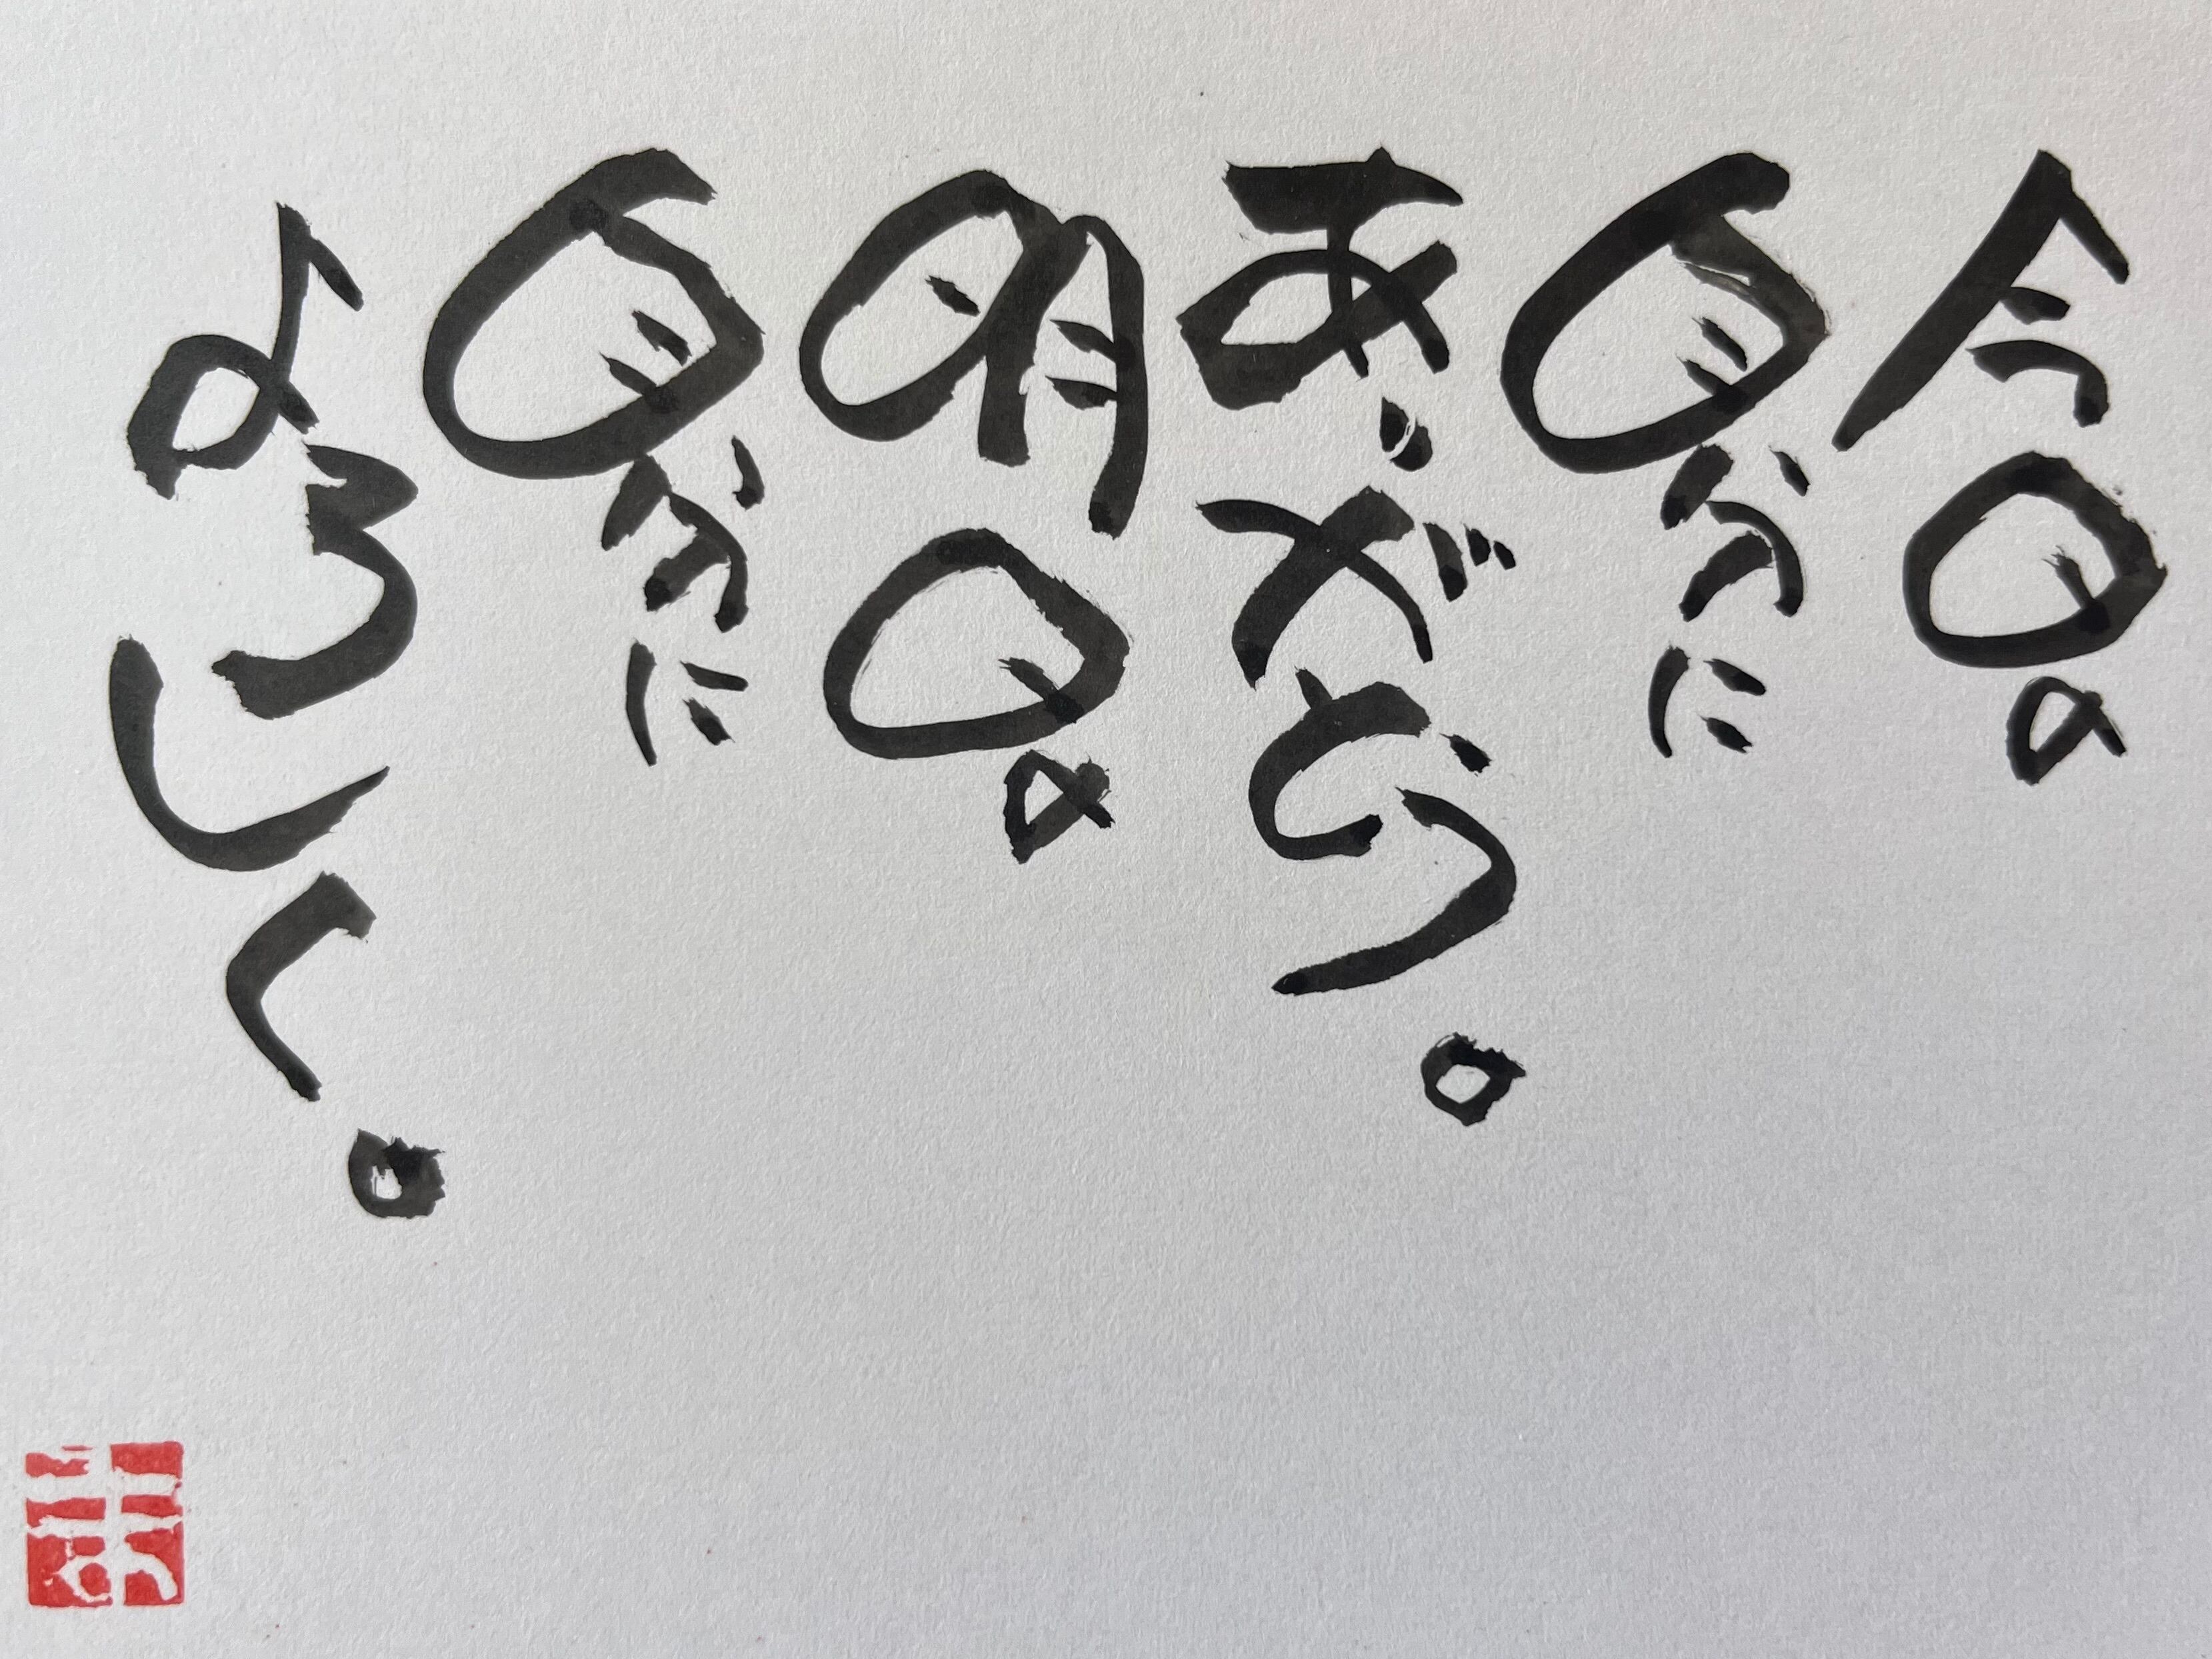 今日の
自分に
ありがとう。
明日の
自分に
よろしく。